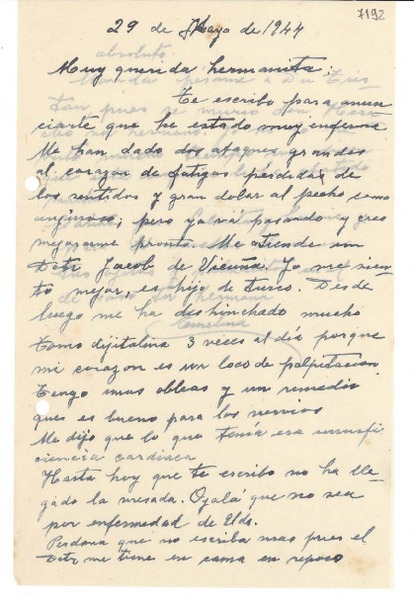 7192
29 de Mayo de 1944
Muy querida hermanita:
Te escribo para anun
ciarte que he estado muy enferma
Me han dado dos ataques grandes
al corazon de fatigas pérdidas de
los sentidos y gran dolor al pecho como
anginoso; pero ya va pasando y creo
mejorarme pronto. Me atiende un
Dctr Jacob de Vicuña. Yo me sien
to mejor, es hijo de turco. Desde
luego me ha deshinchado mucho
Tomo dijitalina 3 veces al día porque
mi corazon es un loco de palpitacion
Tengo unas obleas y un remedio
que es bueno para los nervios
Me dijo que lo que tenía era insufi
ciencia cardiaca
Hasta hoy que te escribo no ha lle
gado la mesada. Ojalá que no sea
por enfermedad de Uds.
Perdona que no escriba mas pues el
Dctr me tiene en cama en reposo
absoluto.
hermana
Emelina